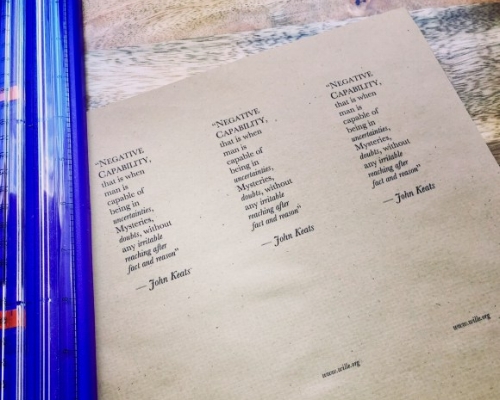 "NEGATIVE
CAPABILITY,
that is when
man is
capable of
being in
uncertainties,
Mysteries,
doubts, without
any irritable
reaching after
fact and reason"
— John Keats
"NEGATIVE
CAPABILITY,
that is when
man is
capable of
being in
uncertainties,
Mysteries,
doubts, without
any irritable
reaching after
fact and reason"
— John Keats
"NEGATIVE
CAPABILITY,
that is when
man is
capable of
being in
uncertainties,
Mysteries,
doubts, without
any irritable
reaching after
fact and reason"
— John Keats